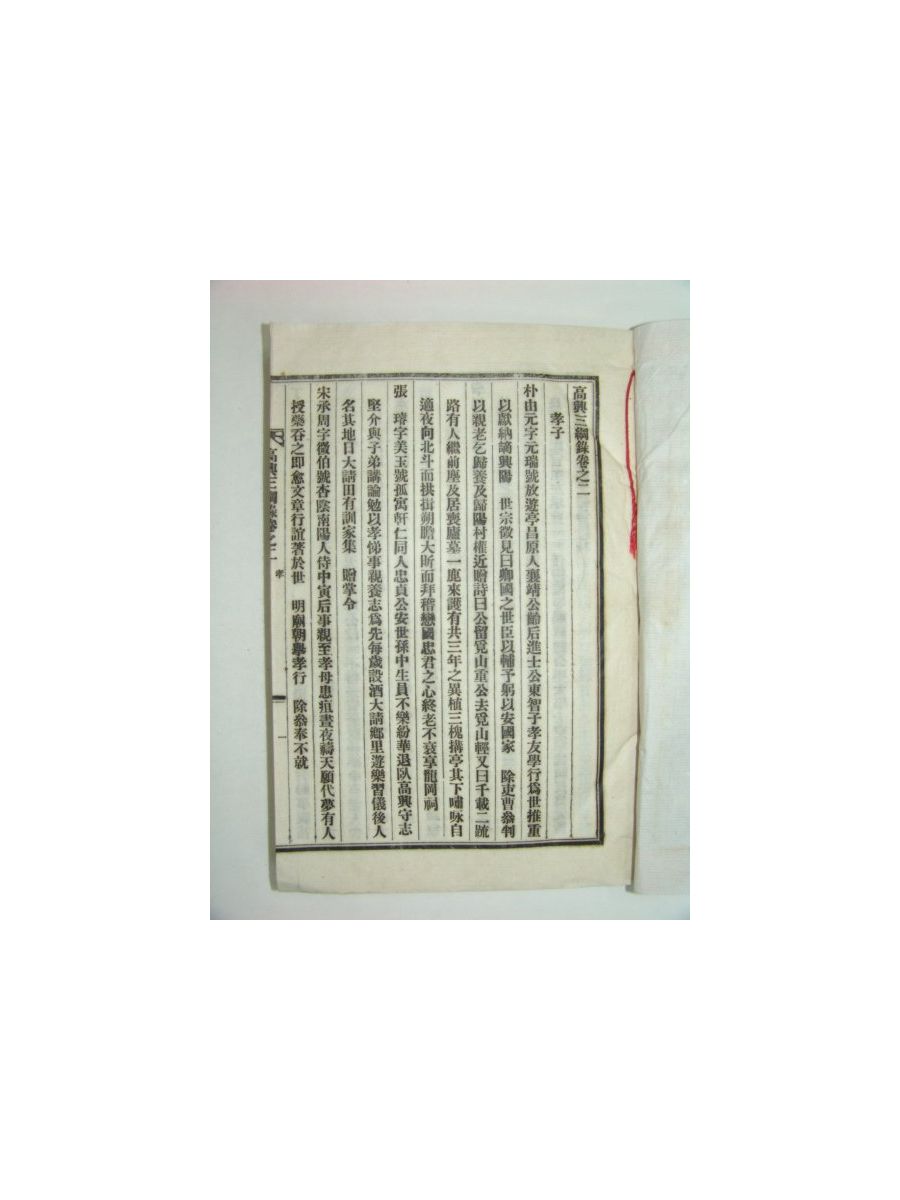 高興三綱錄卷之二
孝子
朴由元字元瑞號放遊亭昌原人襄靖公齡后進士公東智子孝友學行爲世推重
以獻納謫興陽 世宗徵見曰卿國之世臣以輔予躬以安國家 除吏曹叅判
以親老乞歸養及歸陽村權近贈詩曰公留覓山重公去覓山輕又曰千載二疏
路有人繼前塵及居喪廬墓一鹿來護有共三年之異植三槐搆亭其下嘯咏自
適夜向北斗而拱揖朔瞻大昕而拜稽戀國忠君之心終老不衰享龍岡祠
張 璿字美玉號孤寓軒仁同人忠貞公安世孫中生員不樂紛華退臥高興守志
堅介與子弟講論勉以孝悌事親養志爲先每歲設酒大請鄕里遊樂習儀後人
名其地曰大請田有訓家集 贈掌令
宋承周字徵伯號杏陰南陽人侍中寅后事親至孝母患疽晝夜禱天願代夢有人
授藥吞之卽愈文章行誼著於世 明廟朝擧孝行 除叅奉不就
高興三綱錄卷之二 孝 一